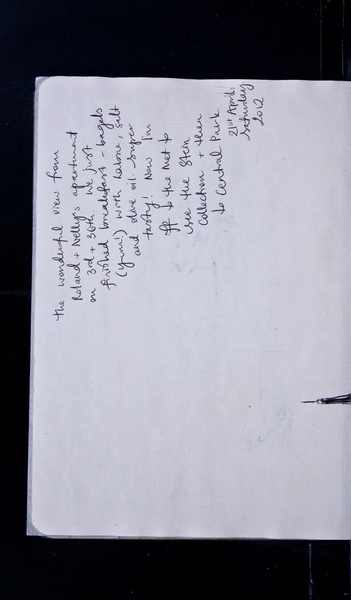 the wonderful view from
Roland + Nelly's apartment
on 3rd + 36th. We just
finished breakfast - bagels
(yum!) with labne, salt
and olive oil. Super
tasty! Now I'm
off to the Met to
see the Stein
Collection + then
to Central Park
21st April
Saturday
2012